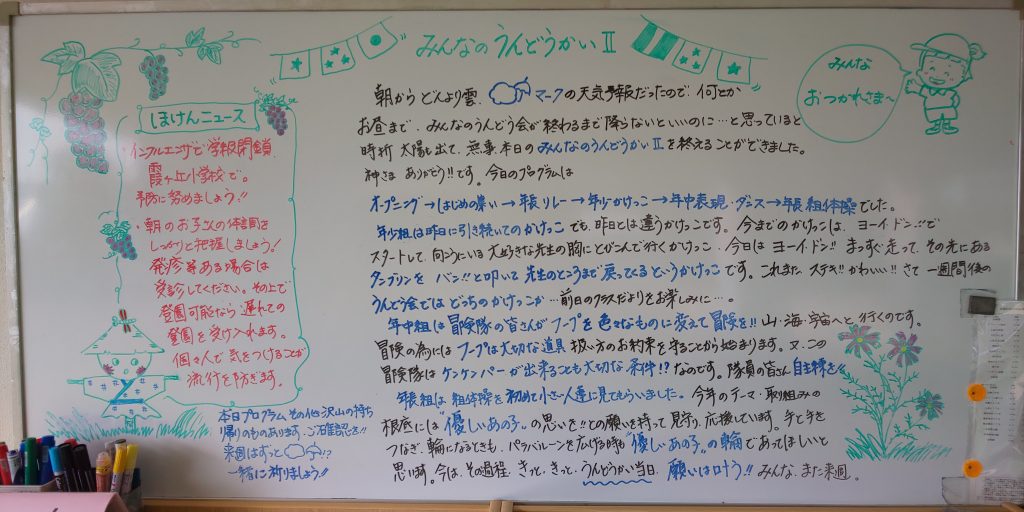 みんなのうんどうかいⅡ
みんな
おつかれさま〜
ほけんニュース
・インフルエンザで学級閉鎖
霞ヶ丘小学校で。
予防に努めましょう!!
・朝のお子さんの体調を
しっかりと把握しましょう!
発疹等ある場合は
受診してください。その上で
登園可能なら遅れての
登園を受け入れます。
個々人で気をつけることが
流行を防ぎます。
本日プログラム、その他沢山の持ち
帰りのものあります。ご確認を!!
来週はずっと!?
一緒に祈りましょう!!
朝からどんより雲、マークの天気予報だったので、何とか
お昼まで、みんなのうんどう会が終わるまで降らないといいのに…と思っていると
時折太陽も出て、無事、本日のみんなのうんどうかいⅡを終えることができました。
神さまありがとう!!です。今日のプログラムは
オープニング→はじめの集い→年長リレー→年少かけっこ→年中表現・ダンス→年長組体操でした。
年少組は昨日に引き続いてのかけっこでも、昨日とは違うかけっこです。今までのかけっこは、ヨーイドン!!で
スタートして、向こうにいる大好きな先生の胸にとびこんで行くかけっこ、今日はヨーイドン!!まっすぐ走って、その先にある
タンブリンをバン!!と叩いて先生のところまで戻ってくるというかけっこです。これまたステキ!!かわいい!!さて一週間後の
うんどう会ではどちらのかけっこか…前日のクラスだよりをお楽しみに…。
年中組は冒険隊の皆さんがフープを色々なものに変えて冒険を!!山・海・宇宙へと行くのです。
冒険の為にはフープは大切な道具、扱い方のお約束を守ることから始まります。又、この
冒険隊はケンケンパーが出来ることも大切な条件!?なのです。隊員の皆さん自主練を!!
年長組は組体操を初めて小さい人達に見てもらいました。今年のテーマ・取り組みの
根底には"優しいあの子"の思いを!!との願いを持って見守り、応援しています。手と手を
つなぎ、輪になるときも、パラバルーンを広げる時も"優しいあの子"の輪であってほしいと
思います。今は、その過程、きっと、きっと、うんどうかい当日、願いは叶う!!みんな、また来週。